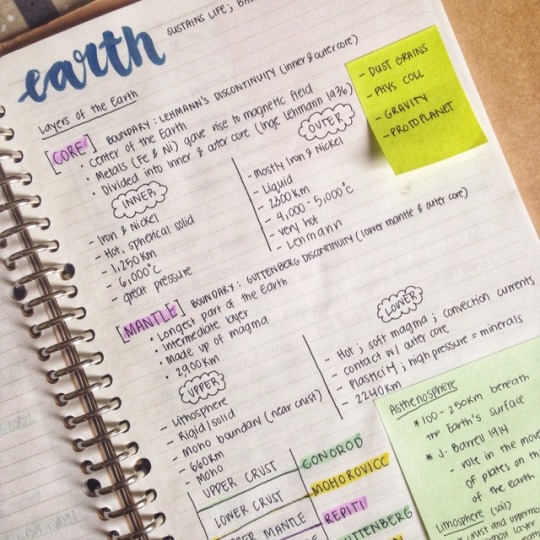 earth
SUSTAINS LIFE;
Layers of the Earth
[CORE] BOUNDARY: LEHMANN'S DISCONTINUITY (inner & outer core)
• Center of the Earth
• Metals (Fe & Ni) gave rise to magnetic field
• Divided into inner & outer core (Inge Lehmann 1936)
INNER
- Iron & Nickel
- Hot, spherical solid
- 1,250 km
- 6,000°C
- great pressure
OUTER
- mostly Iron & Nickel
- Liquid
- 2300 km
- 4,000 - 5,000°C
- very hot
- Lehmann
- DUST GRAINS
- PHYS COLL
- GRAVITY
- PROTOPLANET
[MANTLE] BOUNDARY: GUTTENBERG DISCONTINUITY (lower mantle & outer core)
• Longest part of the Earth
• Intermediate layer
• Made up of magma
• 2,900 km
UPPER
- Lithosphere
- Rigid/solid
- Moho boundary (near crust)
- 660km
- Moho
LOWER
- Hot; soft magma; convection currents
- contact w/ outer core
- Plasticity; high pressure = minerals
- 2240 km
UPPER CRUST CONOROD
LOWER CRUST MOHOROVICC
MANTLE REPITI
GUTTENBERG
Asthenosphere
* 100 - 250km beneath
the Earth's surface
* J. Barrell 1914
- role in the
of plates on
of the earth
Lithosphere
crust and
most layer